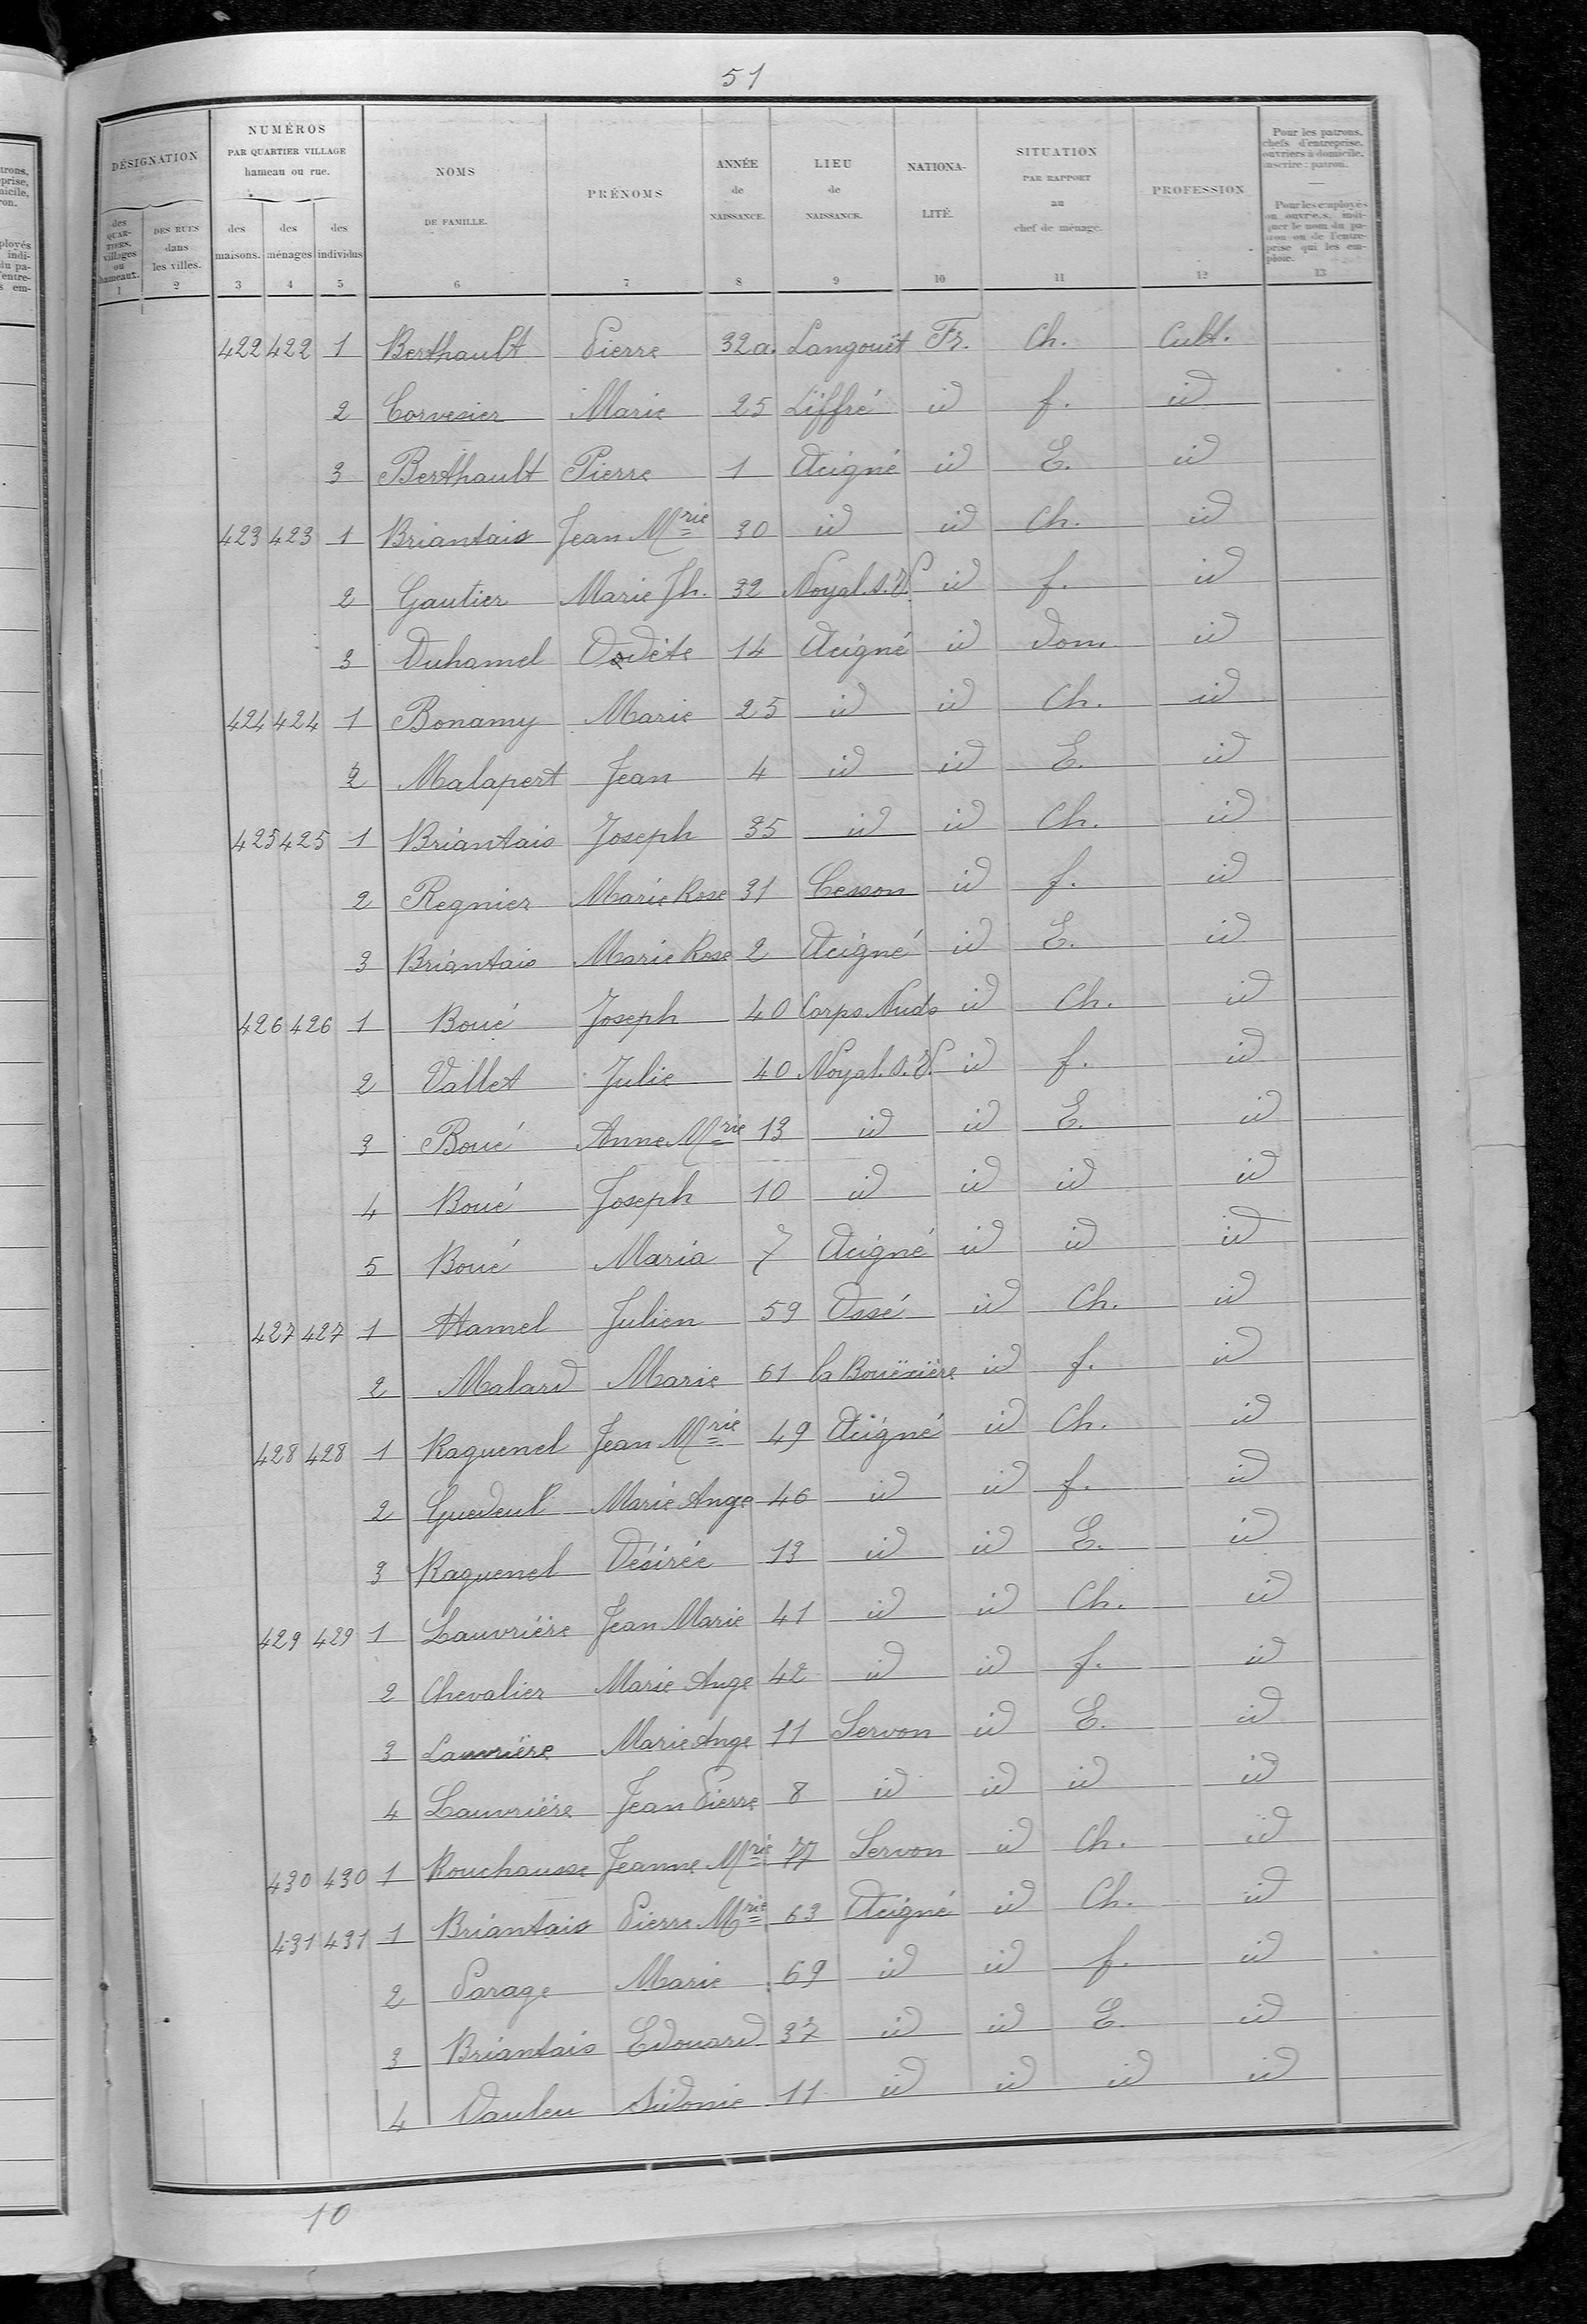 51
DÉSIGNATION
NUMÉROS
PAR QUARTIER VILLAGE
hameau ou rue.
NOMS
DE FAMILLE.
PRÉNOMS
ANNÉE
de
NAISSANCE.
LIEU
de
NAISSANCE.
NATIONA-
LITÉ.
SITUATION
PAR RAPPORT
au
chef de ménage.
PROFESSION
Pour les patrons,
chefs d'entreprise,
ouvriers à domicile,
inscrire : patron.
Pour les employés
ou ouvriers, indi-
quer le nom du pa-
tron ou de l'entre-
prise qui les em-
ploie.
des
QUAR-
TIERS,
villages
ou
hameaux.
DES RUES
dans
les villes.
des
maisons.
des
ménages
des
individus
1 2 3 4 5 6 7 8 9 10 11 12 13
422 422 1 Berthault Pierre 32 a. Langouët Fr. Ch. Cult.
2 Corvesier Marie 25 Liffré id f. id
3 Berthault Pierre 1 Acigné id E. id
423 423 1 Briantais Jean Mrie 30 id id Ch. id
2 Gautier Marie Jh. 32 Noyal.s.V. id f. id
3 Duhamel Odète 14 Acigné id dom id
424 424 1 Bonamy Marie 25 id id Ch. id
2 Malapert Jean 4 id id E. id
425 425 1 Briantais Joseph 35 id id Ch. id
2 Regnier Marie Rose 31 Cesson id f. id
3 Briantais Marie Rose 2 Acigné id E. id
426 426 1 Boué Joseph 40 Corps.Nuds id Ch. id
2 Vallet Julie 40 Noyal.s.V. id f. id
3 Boué Anne Mrie 13 id id E. id
4 Boué Joseph 10 id id id id
5 Boué Maria 7 Acigné id id id
427 427 1 Hamel Julien 59 Ossé id Ch. id
2 Malard Marie 61 la Bouëxière id f. id
428 428 1 Raguenel Jean Mrie 49 Acigné id Ch. id
2 Guedeul Marie Ange 46 id id f. id
3 Raguenel Désirée 13 id id E. id
429 429 1 Lauvrière Jean Marie 41 id id Ch. id
2 Chevalier Marie Ange 42 id id f. id
3 Lauvrière Marie Ange 11 Servon id E. id
4 Lauvrière Jean Pierre 8 id id id id
430 430 1 Rouchausse Jeanne Mrie 77 Servon id Ch. id
431 431 1 Briantais Pierre Mrie 63 Acigné id Ch. id
2 Parage Marie 69 id id f. id
3 Briantais Edouard 37 id id E. id
4 Dauleu Sidonie 11 id id id id
10